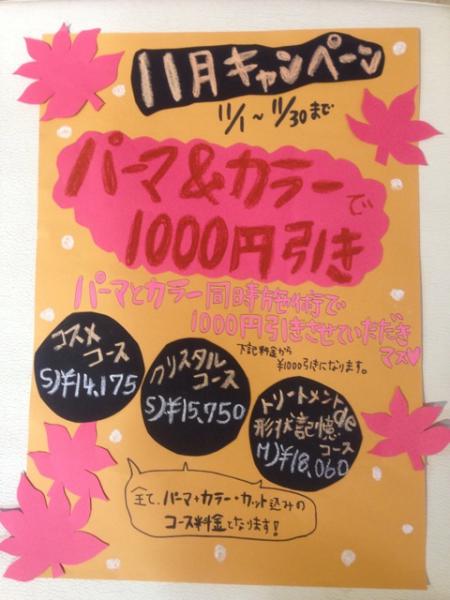 11月キャンペーン
11/1〜11/30まで
パーマ&カラーで
1000円引き
パーマとカラー同時施術で
1000円引きさせていただき
マス♡
下記料金から
¥1000引きになります。
コスメ
コース
S)¥14,175
クリスタル
コース
S)¥15,750
トリートメント
de
形状記憶
コース
M)¥18,060
全て、パーマ+カラー・カット込みの
コース料金となります!